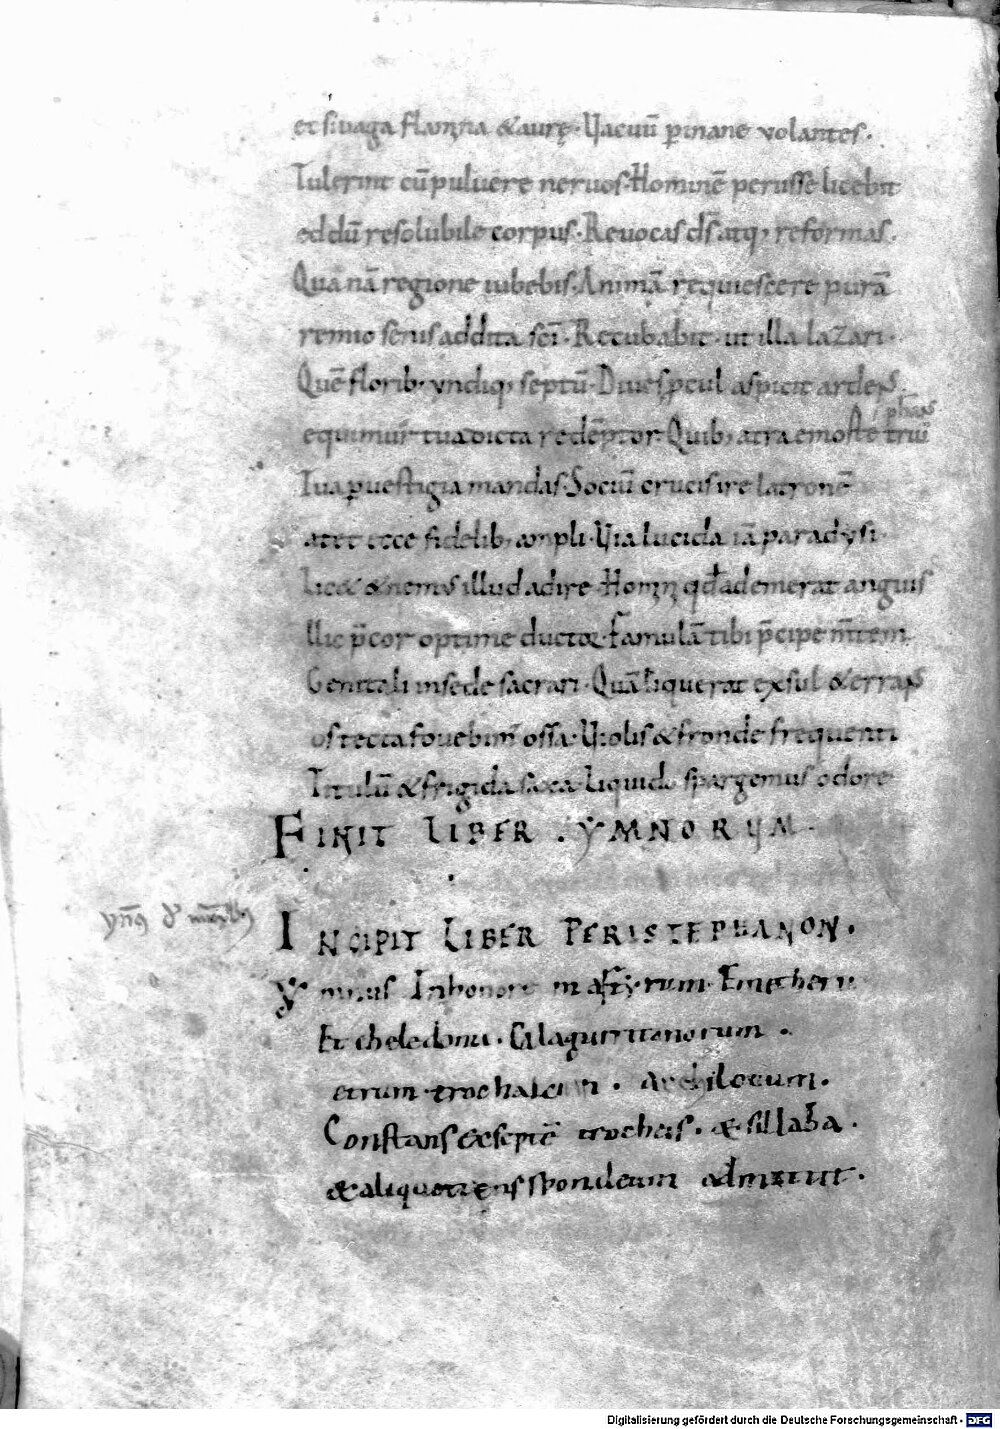 et si uaga flamma & aurę · Uacuū p̄ inane volantes .
Tulerint cū puluere neruos · Hominē periisse licebit
ed dū resolubile corpus · Reuocas d̄s atq; reformas .
Quanā regione iubebis · Animā requiescere purā
remio senis addita sc̄i · Recubabit · ut illa lazari .
Quē florib; vndiq; septū · Diues p̄cul aspicit ardens .
equimur tua dicta redēptor · Quib; atra e morte triū
phans
Tua p uestigia mandas · Sociū crucis ire latronē
atet ecce fidelib; ampli · Uia lucida iā paradysi .
Lic& & nemus illud adire · Homini qđ ademerat anguis
llic p̄cor optime ductor · Famulā tibi p̄cipe m̄tem
Genitali in sede sacrari · Quā liquerat exsul & errans
os tecta fouebim; ossa · Uiolis & fronde frequenti
Titulū & frigida saxa · Liquido spargemus odore
FINIT LIBER · YMNORUM ·
INCIPIT LIBER PERISTEPHANON .
ymnus In honore martyrum · Emetherii
Et cheledonii · Calagurritanorum .
etrum · trochaicum . archilocum .
Constans ex septē trocheis . & sillaba .
& aliquotiens spondeum admittit .